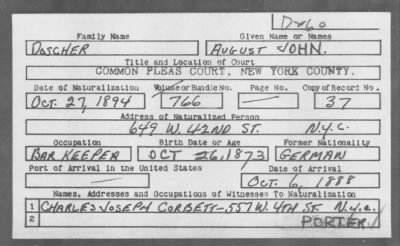 D260
Family Name Given Name or Names
DOSCHER AUGUST JOHN.
Title and Location of Court
COMMON PLEAS COURT, NEW YORK COUNTY.
Date of Naturalization Volume or Bundle No. Page No. Copy of Record No.
OCT. 27, 1894 766 — 37
Address of Naturalized Person
649 W. 42ND ST. N.Y.C.
Occupation Birth Date or Age Former Nationality
BAR KEEPER OCT 26, 1873 GERMAN
Port of Arrival in the United States Date of Arrival
— OCT. 6, 1888
Names, Addresses and Occupations of Witnesses To Naturalization
1 CHARLES JOSEPH CORBETT - 557 W. 4TH ST. N.Y.C.
2 PORTER